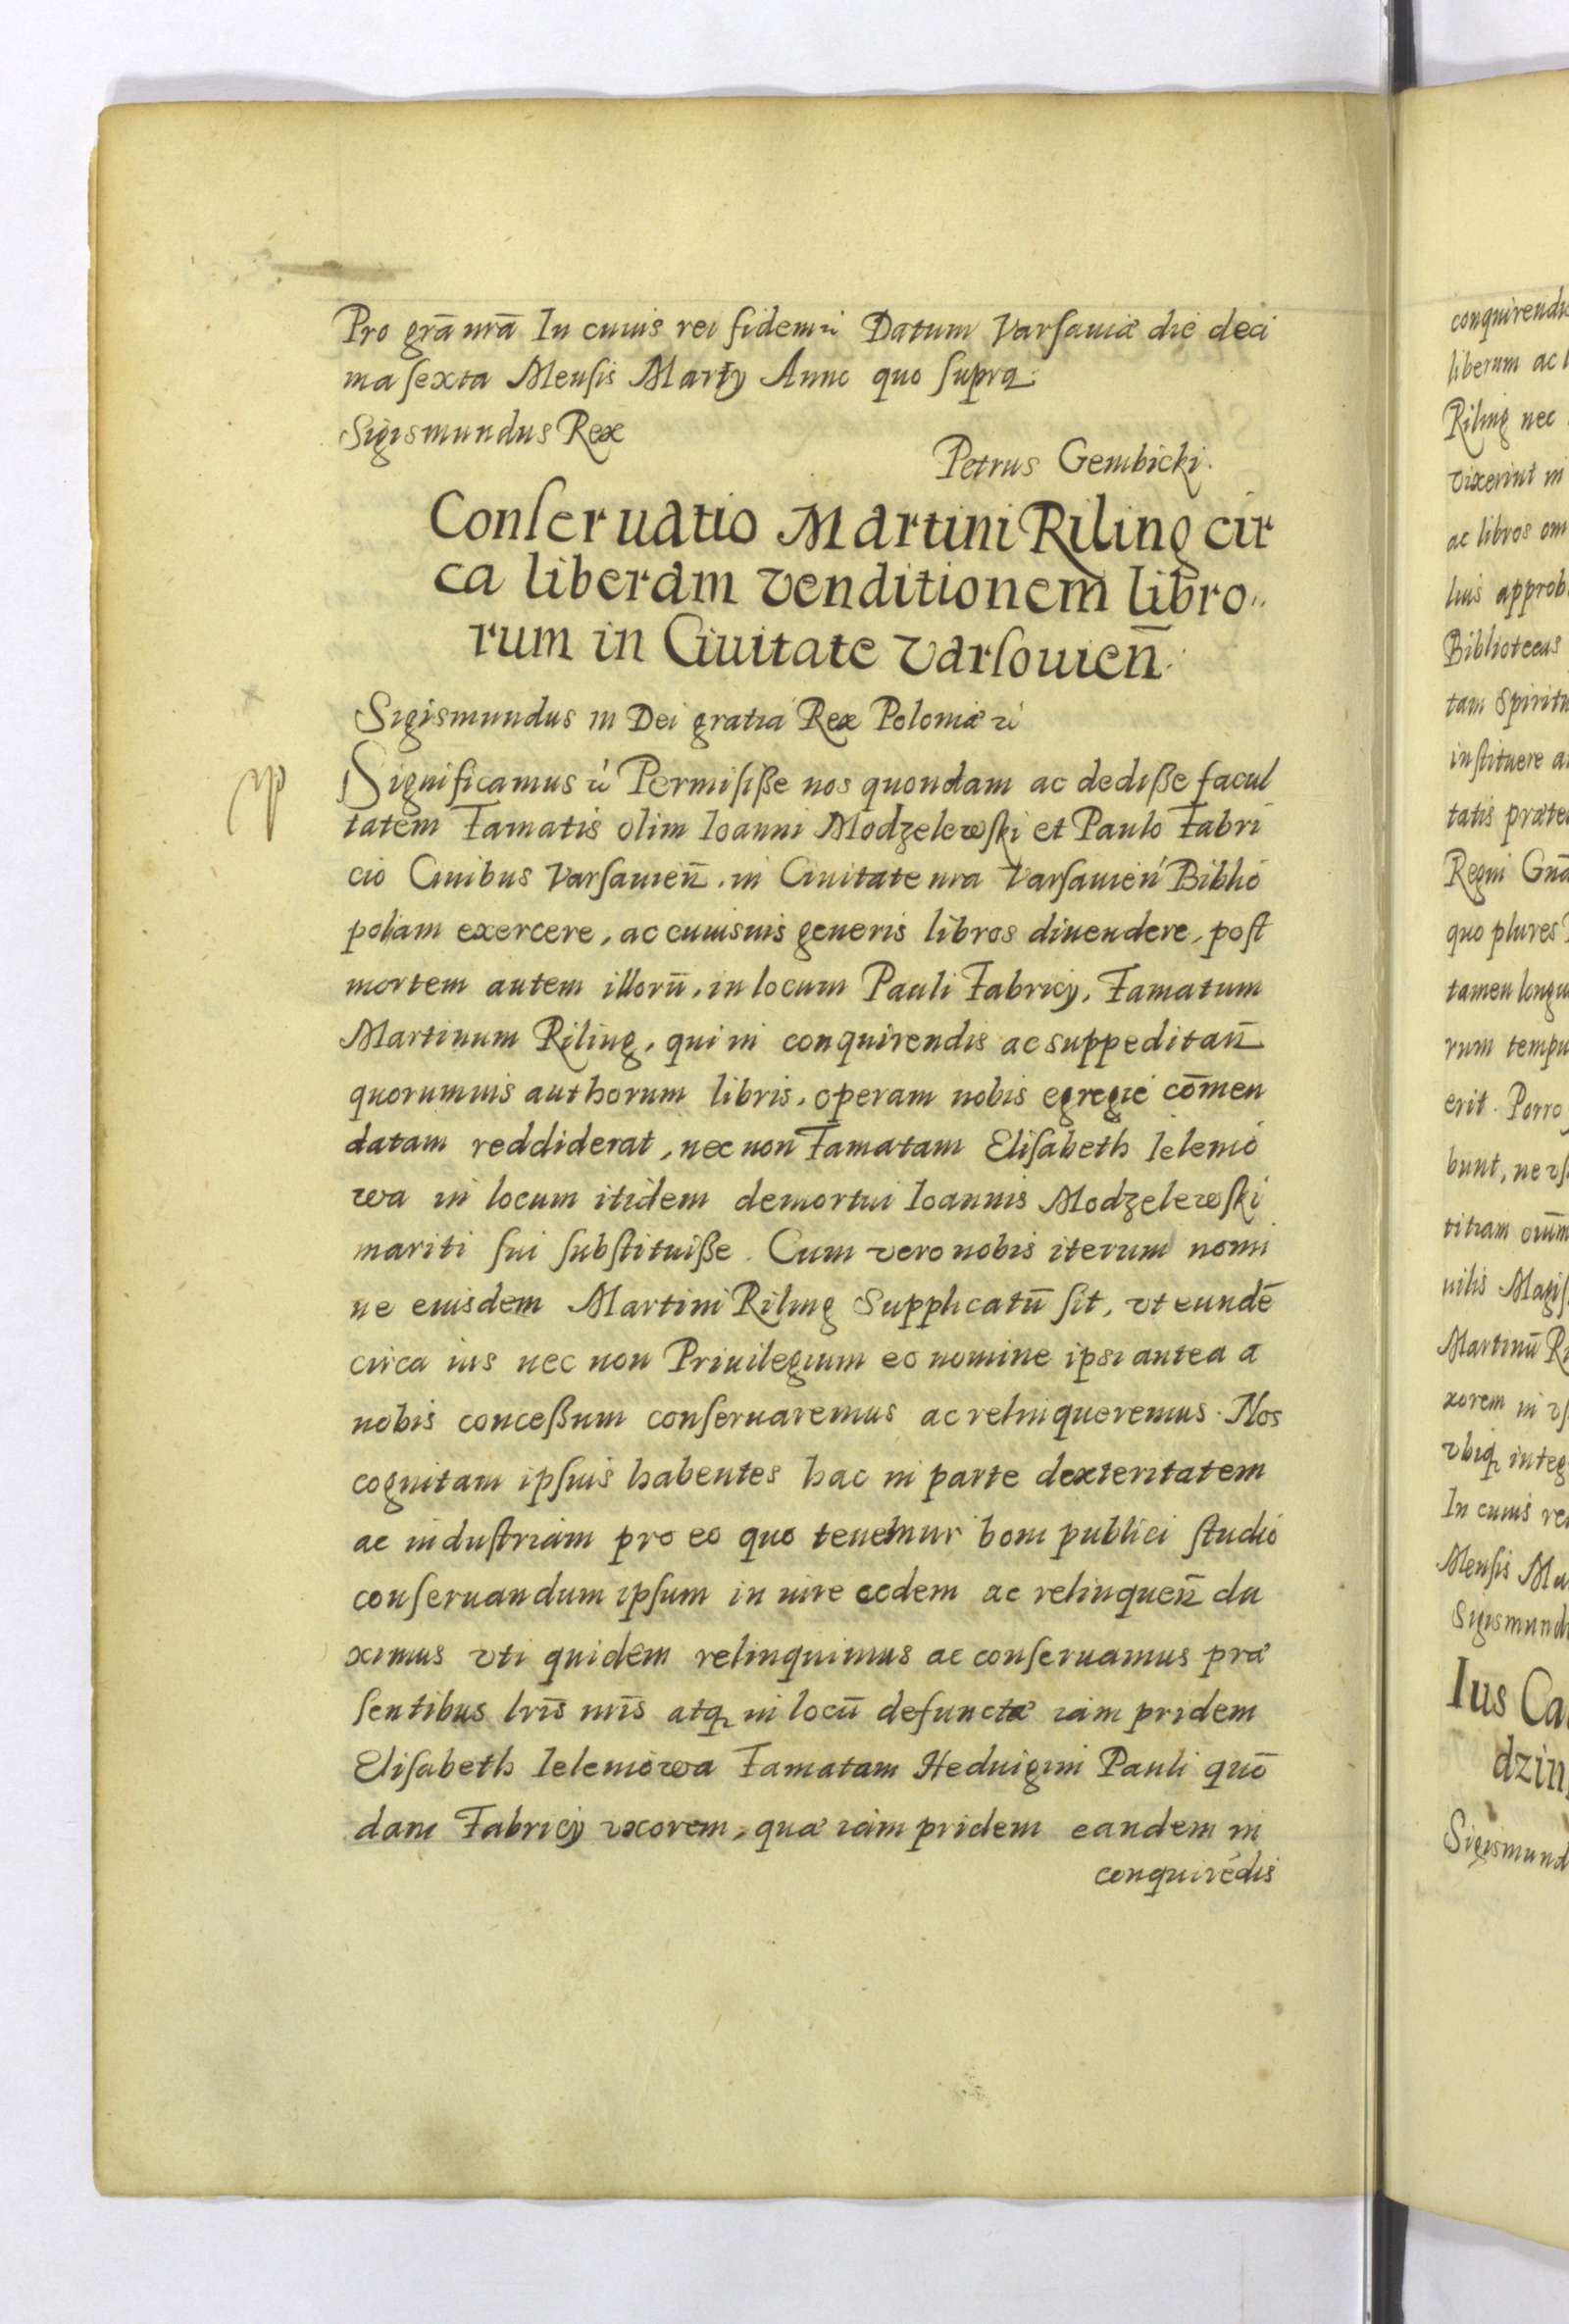 Pro grã nrã In cuius rei fidem ꝛc Datum Varsauiæ die deci
ma sexta Mensis Martÿ Anno quo supra.
Sigismundus Rex
Petrus Gembicki.
Conseruatio Martini Riling cir
ca liberam venditionem libro
rum in Ciuitate Varsouieñ.
Sigismundus III Dei gratia Rex Poloniæ ꝛc
Significamus ꝛc Permisiße nos quondam ac dediße facul
tatem Famatis olim Ioanni Modzelewski et Paulo Fabri
cio Ciuibus Varsauieñ. in Ciuitate nra Varsauień Biblio
poliam exercere, ac cuiusuis generis libros diuendere, post
mortem autem illorũ, in locum Pauli Fabricÿ, Famatum
Martinum Riling, qui in conquirendis ac suppeditañ
quorumuis authorum libris, operam nobis egregie cõmen
datam reddiderat, nec non Famatam Elisabeth Ielenio
wa in locum itidem demortui Ioannis Modzelewski
mariti sui substituiße. Cum vero nobis iterum nomi
ne eiusdem Martini Riling Supplicatũ sit, vt eundẽ
circa ius nec non Priuilegium eo nomine ipsi antea a
nobis conceßum conseruaremus ac relinqueremus. Nos
cognitam ipsius habentes hac in parte dexteritatem
ac industriam pro eo quo tenemur boni publici studio
conseruandum ipsum in iure eodem ac relinqueñ du
ximus vti quidem relinquimus ac conseruamus præ
sentibus lrĩs nrĩs atq; in locũ defunctæ iam pridem
Elisabeth Ieleniowa Famatam Heduigim Pauli quõ
dam Fabricÿ vxorem, quæ iam pridem eandem in
conquirẽdis
conquirendi
liberum ac l
Riling nec
vixerint in
ac libros om
lius approb
Bibliotecas
tam Spiritu
instituere a
tatis præte
Regni Gnã
quo plures
tamen longu
rum tempu
erit. Porro
bunt, ne vs
titiam oium
uilis Magis
Martinũ Ri
xorem in vs
vbiq; integ
In cuius rei
Mensis Ma
Sigismundu
Ius Ca
dzin
Sigismund